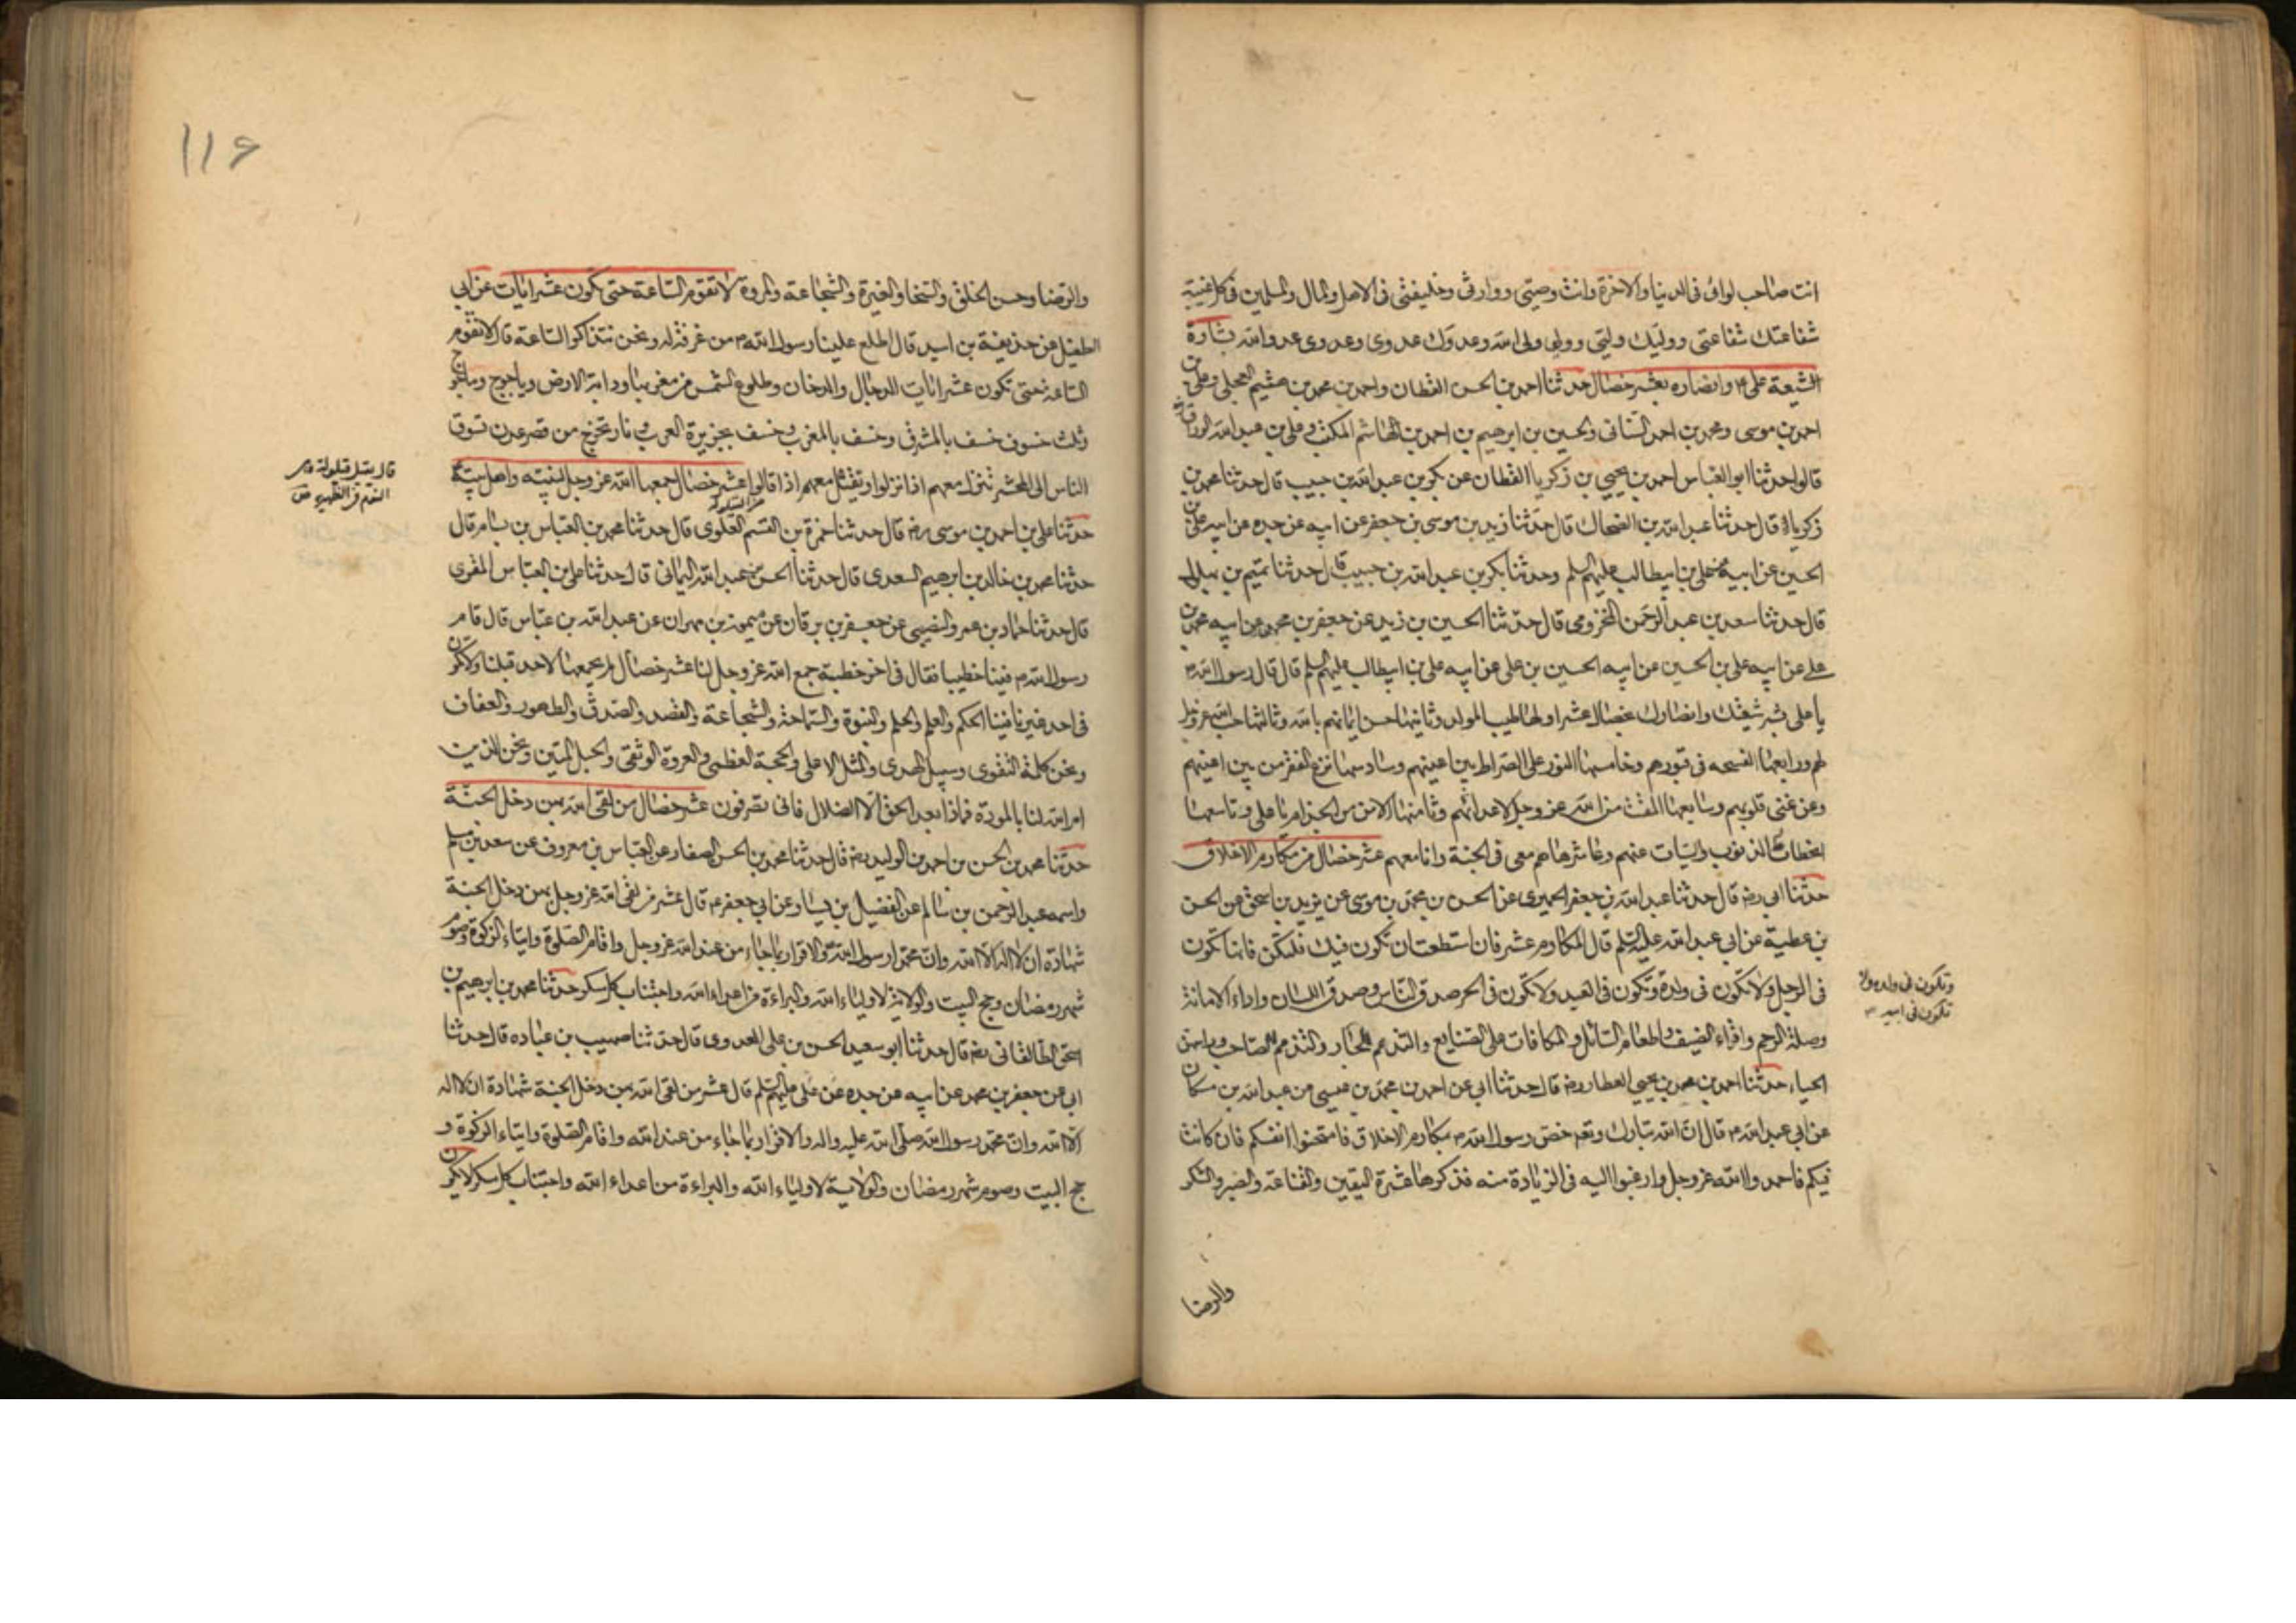 انت صاحب لوائى فى الدنيا والاخرة وانت وصيتى ووارثى وخليفتى فى الاهل والمال والمسلمين فى كل غيبة
شفاعتك شفاعتى ووليك وليتى ووليى ولى الله وعدوك عدوى وعدوى عدو الله بشارة
الشيعة على وانصاره بعشر خصال حدثنا احمد بن الحسن القطان واحمد بن محمد بن هشيم العجلى وعلى بن
احمد بن موسى ومحمد بن احمد السنانى والحسين بن ابرهيم بن احمد بن هاشم المكتب وعلى بن عبد الله الوراق
قالوا حدثنا ابو العباس احمد بن يحيى بن زكريا القطان عن بكر بن عبد الله بن حبيب قال حدثنا محمد بن
زكريا قال حدثنا عبد الله بن الضحاك قال حدثنا زيد بن موسى بن جعفر عن ابيه عن جده عن ابيه على بن
الحسين عن ابيه عن على بن ابيطالب عليهم السلم وحدثنا بكر بن عبد الله بن حبيب قال حدثنا تميم بن بهلول
قال حدثنا سعد بن عبد الرحمن المخزومى قال حدثنا الحسين بن زيد عن جعفر بن محمد عن ابيه محمد بن
على عن ابيه على بن الحسين عن ابيه الحسين بن على عن ابيه على بن ابيطالب عليهم السلم قال قال رسول الله ص
يا على بشر شيعتك وانصارك بخصال عشر اولها طيب المولد وثانيتها حسن ايمانهم بالله وثالثها حب الله عز وجل
لهم ورابعها الفسحه فى قبورهم وخامسها النور على الصراط بين اعينهم وسادسها نزع الفقر من بين اعينهم
وعن غنى قلوبهم وسابعها المقت من الله عز وجل لاعدائهم وثامنها الامن من الجذام يا على وتاسعها
انحطاط الذنوب والسيئات عنهم وعاشرها هم معى فى الجنة وانا معهم عشر خصال من مكارم الاخلاق
حدثنا ابى رضه قال حدثنا عبد الله بن جعفر الحميرى عن الحسن بن محمد بن موسى عن يزيد بن اسحق عن الحسن
بن عطية عن ابى عبد الله عليه السلم قال المكارم عشر فان استطعت ان تكون فيك فلتكن فانها تكون
فى الرجل ولا تكون فى ولده وتكون فى العبد ولا تكون فى الحر صدق الناس وصدق اللسان واداء الامانة
وتكون فى ولده ولا
تكون فى ابيه
وصلة الرحم واقراء الضيف واطعام السائل والمكافات على الصنايع والتذمم للجار والتذمم للصاحب وراسهن
الحياء حدثنا احمد بن محمد بن يحيى العطار رضه قال حدثنا ابى عن احمد بن محمد بن عيسى عن عبد الله بن مسكان
عن ابى عبد الله ع قال ان الله تبارك وتعه خص رسول الله ص بمكارم الاخلاق فامتحنوا انفسكم فان كانت
فيكم فاحمدوا الله عز وجل وارغبوا اليه فى الزيادة منه فذكرها عشرة اليقين والقناعة والصبر والشكر
والرضا
116
والرضا وحسن الخلق والسخا والغيرة والشجاعة والمروة لا تقوم الساعة حتى تكون عشر ايات عن ابى
الطفيل عن حذيفة بن اسيد قال اطلع علينا رسول الله ص من غرفة له ونحن نتذاكر الساعة قال لا تقوم
الساعة حتى تكون عشر ايات الدجال والدخان وطلوع الشمس من مغربها ودابة الارض وياجوج وماجوج
وثلث خسوف خسف بالمشرق وخسف بالمغرب وخسف بجزيرة العرب ونار تخرج من قصر عدن تسوق
الناس الى المحشر تنزل معهم اذا نزلوا وتقيل معهم اذا قالوا عشر خصال جمعها الله عز وجل لنبيه واهل بيته
قال يقيل قيلولة
النوم فى الظهيرة ص
حدثنا على بن احمد بن موسى رضه قال حدثنا حمزة بن القسم العلوى قال حدثنا محمد بن العباس بن بسام قال
حدثنا محمد بن خالد بن ابرهيم السعدى قال حدثنا الحسن بن عبد الله اليمانى قال حدثنا على بن العباس المقرى
قال حدثنا حماد بن عمرو النصيبى عن جعفر بن برقان عن ميمون بن مهران عن عبد الله بن عباس قال قام
رسول الله ص فينا خطيبا فقال فى اخر خطبته جمع الله عز وجل لنا عشر خصال لم يجمعها لاحد قبلنا ولا تكون
فى احد غيرنا فينا الحكم والعلم والحلم والنبوة والسماحة والشجاعة والقصد والصدق والطهور والعفاف
ونحن كلمة التقوى وسبيل الهدى والمثل الاعلى والحجة العظمى والعروة الوثقى والحبل المتين ونحن الذين
امر الله لنا بالمودة فماذا بعد الحق الا الضلال فانى تصرفون عشر خصال من لقى الله بهن دخل الجنة
حدثنا محمد بن الحسن بن احمد بن الوليد رضه قال حدثنا محمد بن الحسن الصفار عن العباس بن معروف عن سعدان بن مسلم
واسمه عبد الرحمن بن سالم عن الفضيل بن يسار عن ابى جعفر ع قال عشر من لقى الله عز وجل بهن دخل الجنة
شهادة ان لا اله الا الله وان محمدا رسول الله والاقرار بما جاء من عند الله عز وجل واقام الصلوة وايتاء الزكوة وصوم
شهر رمضان وحج البيت والولاية لاولياء الله والبراءة من اعداء الله واجتناب كل مسكر حدثنا محمد بن ابرهيم بن
اسحق الطالقانى رضه قال حدثنا ابو سعيد الحسن بن على العدوى قال حدثنا صهيب بن عباده قال حدثنا
ابى عن جعفر بن محمد عن ابيه عن جده عن على عليهم السلم قال عشر من لقى الله بهن دخل الجنة شهادة ان لا اله
الا الله وان محمد رسول الله صلى الله عليه واله والاقرار بما جاء من عند الله واقام الصلوة وايتاء الزكوة و
حج البيت وصوم شهر رمضان والولاية لاولياء الله والبراءة من اعداء الله واجتناب كل مسكر لا يكون